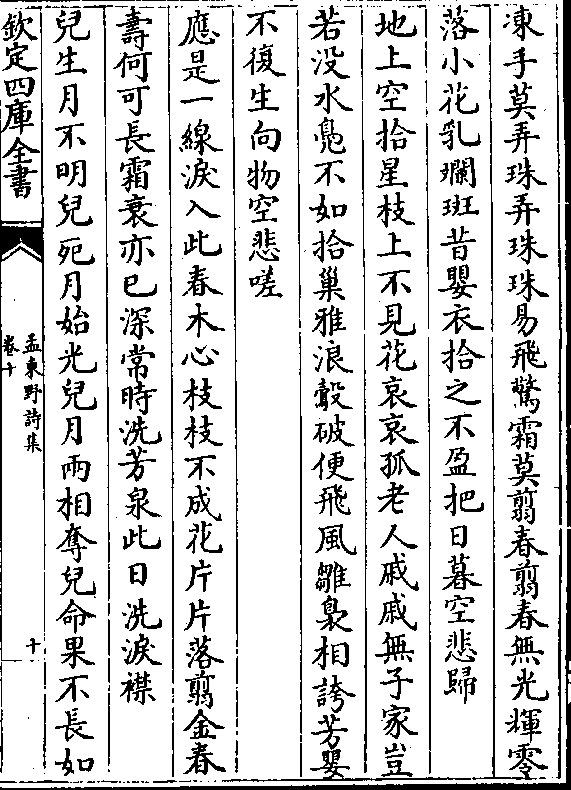 凍手莫弄珠弄珠珠易飛驚霜莫翦春翦春無光輝零
落小花乳斕斑昔嬰衣拾之不盈把日暮空悲歸
地上空拾星枝上不見花哀哀孤老人戚戚無子家豈
若没水鳧不如拾巢雅浪鷇破便飛風雛裊相誇芳嬰
不復生向物空悲嗟
應是一線淚入此春木心枝枝不成花片片落翦金春
壽何可長霜衰亦已深常時洗芳泉此日洗淚襟
兒生月不明兒死月始光兒月兩相奪兒命果不長如
欽定四庫全書
孟東野詩集
卷十
十